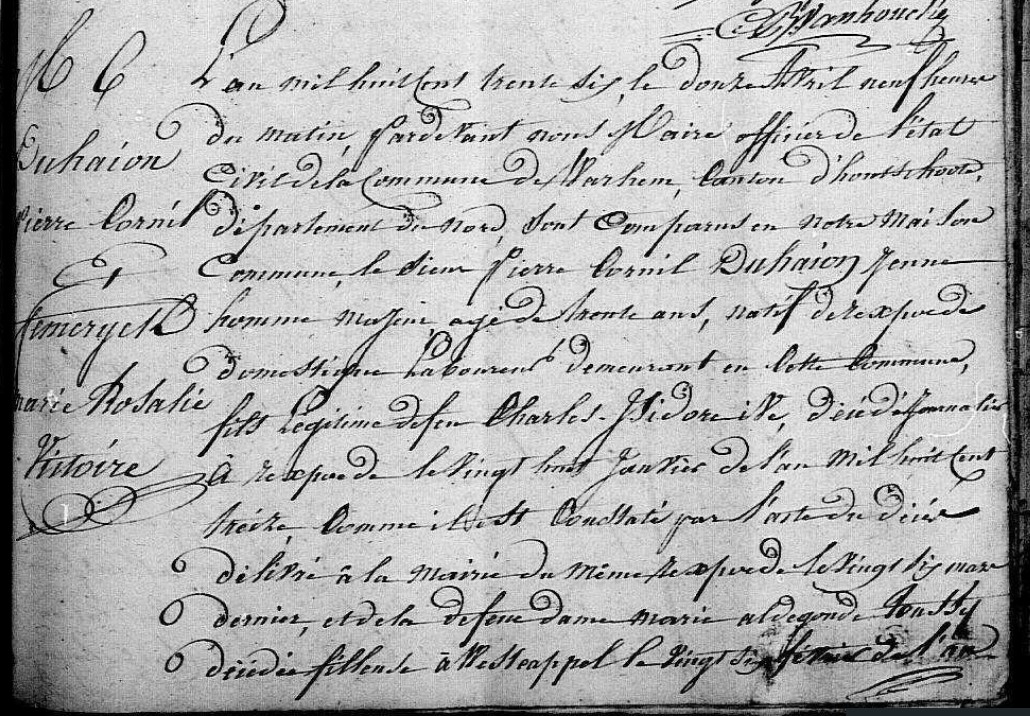 M C
Duhaion
Pierre Cornil
Et
Femeryck
Marie Rosalie
Victoire
L'an mil huit Cent trente six, le douze Avril neuf heures
du matin, pardevant nous Maire officier de l'état
Civil de la Commune de Warhem, Canton d'hontschoote,
département du Nord, sont Comparus en notre Maison
Commune, le sieur Pierre Cornil Duhaion Jenne
homme majeur, agé de trente ans, natif de rexpoede
domestique Laboureur demeurant en Cette Commune,
fils Légitime de feu Charles-Isidore ive, décédé Journalier
à rexpoede le vingt huit Janvier de l'an mil huit Cent
treize, Comme il est Constaté par l'acte du décès
délivré à la mairie du même rexpoede le vingt six mars
dernier, et de la defeue dame marie aldegonde
décédée fileuse à Westcappel le vingt six de l'an